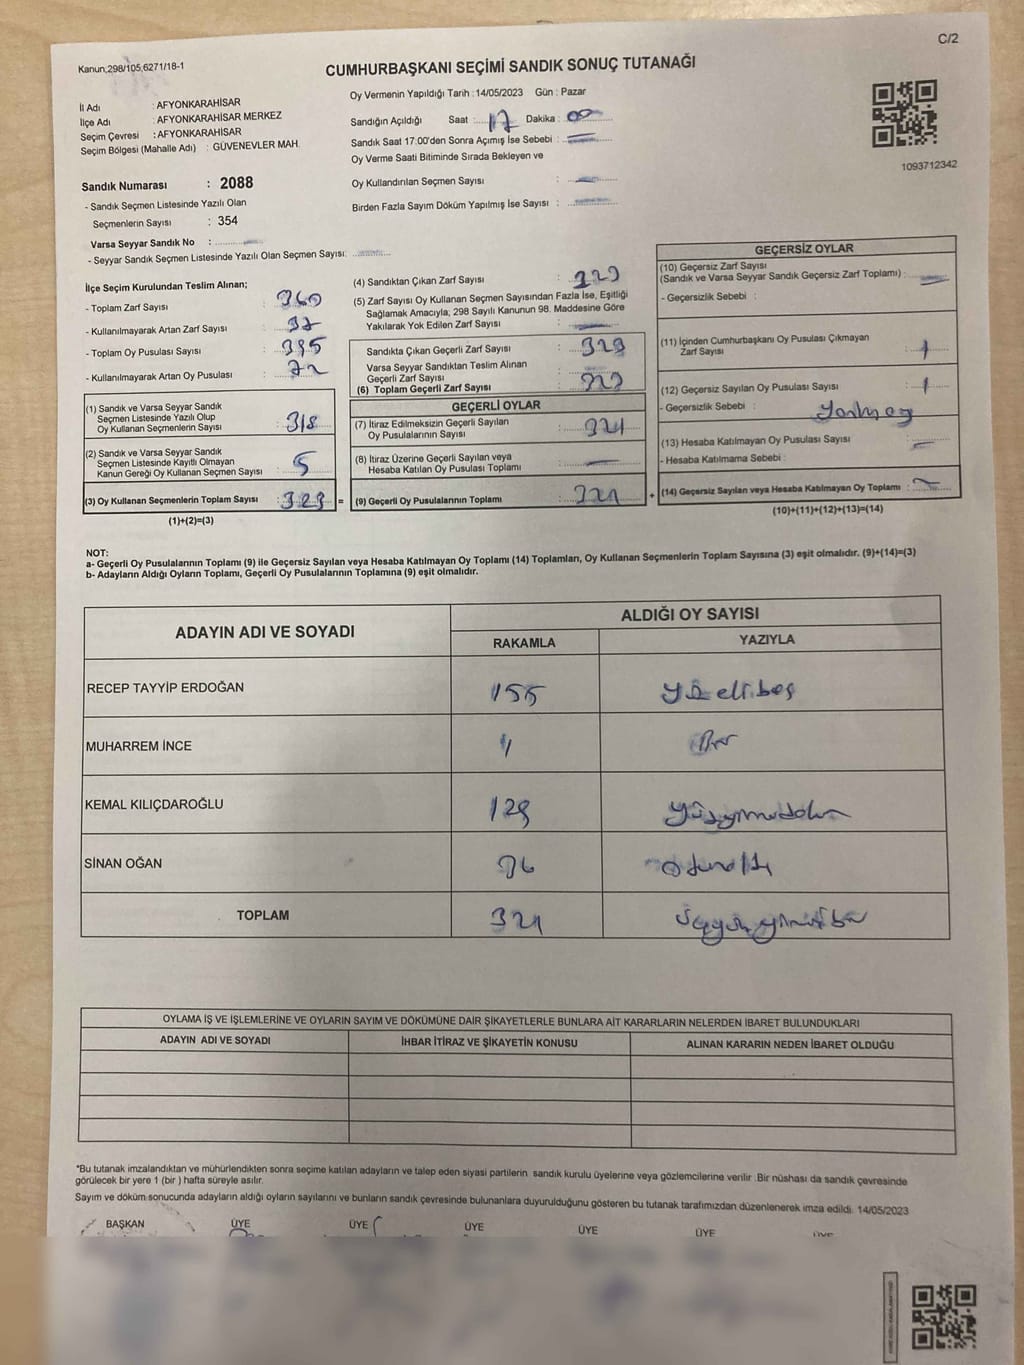 C/2
Kanun,298/105,6271/18-1
CUMHURBAŞKANI SEÇİMİ SANDIK SONUÇ TUTANAĞI
İl Adı : AFYONKARAHİSAR
İlçe Adı : AFYONKARAHİSAR MERKEZ
Seçim Çevresi : AFYONKARAHİSAR
Seçim Bölgesi (Mahalle Adı) : GÜVENEVLER MAH.
Oy Vermenin Yapıldığı Tarih : 14/05/2023 Gün : Pazar
Sandığın Açıldığı Saat : 17 Dakika : 00
Sandık Saat 17:00'den Sonra Açımış İse Sebebi :
Oy Verme Saati Bitiminde Sırada Bekleyen ve
Oy Kullandırılan Seçmen Sayısı :
Birden Fazla Sayım Döküm Yapılmış İse Sayısı :
1093712342
Sandık Numarası : 2088
- Sandık Seçmen Listesinde Yazılı Olan
Seçmenlerin Sayısı : 354
Varsa Seyyar Sandık No :
- Seyyar Sandık Seçmen Listesinde Yazılı Olan Seçmen Sayısı:
İlçe Seçim Kurulundan Teslim Alınan;
- Toplam Zarf Sayısı : 360
- Kullanılmayarak Artan Zarf Sayısı : 37
- Toplam Oy Pusulası Sayısı : 395
- Kullanılmayarak Artan Oy Pusulası : 72
(1) Sandık ve Varsa Seyyar Sandık
Seçmen Listesinde Yazılı Olup
Oy Kullanan Seçmenlerin Sayısı : 318
(2) Sandık ve Varsa Seyyar Sandık
Seçmen Listesinde Kayıtlı Olmayan
Kanun Gereği Oy Kullanan Seçmen Sayısı : 5
(3) Oy Kullanan Seçmenlerin Toplam Sayısı : 323 =
(1)+(2)=(3)
(4) Sandıktan Çıkan Zarf Sayısı : 323
(5) Zarf Sayısı Oy Kullanan Seçmen Sayısından Fazla İse, Eşitliği
Sağlamak Amacıyla; 298 Sayılı Kanunun 98. Maddesine Göre
Yakılarak Yok Edilen Zarf Sayısı :
Sandıkta Çıkan Geçerli Zarf Sayısı : 323
Varsa Seyyar Sandıktan Teslim Alınan
Geçerli Zarf Sayısı :
(6) Toplam Geçerli Zarf Sayısı : 323
GEÇERLİ OYLAR
(7) İtiraz Edilmeksizin Geçerli Sayılan
Oy Pusulalarının Sayısı : 321
(8) İtiraz Üzerine Geçerli Sayılan veya
Hesaba Katılan Oy Pusulası Toplamı :
(9) Geçerli Oy Pusulalarının Toplamı : 321 +
GEÇERSİZ OYLAR
(10) Geçersiz Zarf Sayısı
(Sandık ve Varsa Seyyar Sandık Geçersiz Zarf Toplamı) :
- Geçersizlik Sebebi :
(11) İçinden Cumhurbaşkanı Oy Pusulası Çıkmayan
Zarf Sayısı : 1
(12) Geçersiz Sayılan Oy Pusulası Sayısı : 1
- Geçersizlik Sebebi :
(13) Hesaba Katılmayan Oy Pusulası Sayısı :
- Hesaba Katılmama Sebebi :
(14) Geçersiz Sayılan veya Hesaba Katılmayan Oy Toplamı : 2
(10)+(11)+(12)+(13)=(14)
NOT:
a- Geçerli Oy Pusulalarının Toplamı (9) ile Geçersiz Sayılan veya Hesaba Katılmayan Oy Toplamı (14) Toplamları, Oy Kullanan Seçmenlerin Toplam Sayısına (3) eşit olmalıdır. (9)+(14)=(3)
b- Adayların Aldığı Oyların Toplamı, Geçerli Oy Pusulalarının Toplamına (9) eşit olmalıdır.
ADAYIN ADI VE SOYADI ALDIĞI OY SAYISI
RAKAMLA YAZIYLA
RECEP TAYYİP ERDOĞAN 155 Yüz elli beş
MUHARREM İNCE 1 Bir
KEMAL KILIÇDAROĞLU 129 Yüzyirmidokuz
SİNAN OĞAN 36 Otuzaltı
TOPLAM 321 Üçyüzyirmibir
OYLAMA İŞ VE İŞLEMLERİNE VE OYLARIN SAYIM VE DÖKÜMÜNE DAİR ŞİKAYETLERLE BUNLARA AİT KARARLARIN NELERDEN İBARET BULUNDUKLARI
ADAYIN ADI VE SOYADI İHBAR İTİRAZ VE ŞİKAYETİN KONUSU ALINAN KARARIN NEDEN İBARET OLDUĞU
*Bu tutanak imzalandıktan ve mühürlendikten sonra seçime katılan adayların ve talep eden siyasi partilerin sandık kurulu üyelerine veya gözlemcilerine verilir. Bir nüshası da sandık çevresinde
görülecek bir yere 1 (bir ) hafta süreyle asılır.
Sayım ve döküm sonucunda adayların aldığı oyların sayılarını ve bunların sandık çevresinde bulunanlara duyurulduğunu gösteren bu tutanak tarafımızdan düzenlenerek imza edildi. 14/05/2023
BAŞKAN ÜYE ÜYE ÜYE ÜYE ÜYE ÜYE